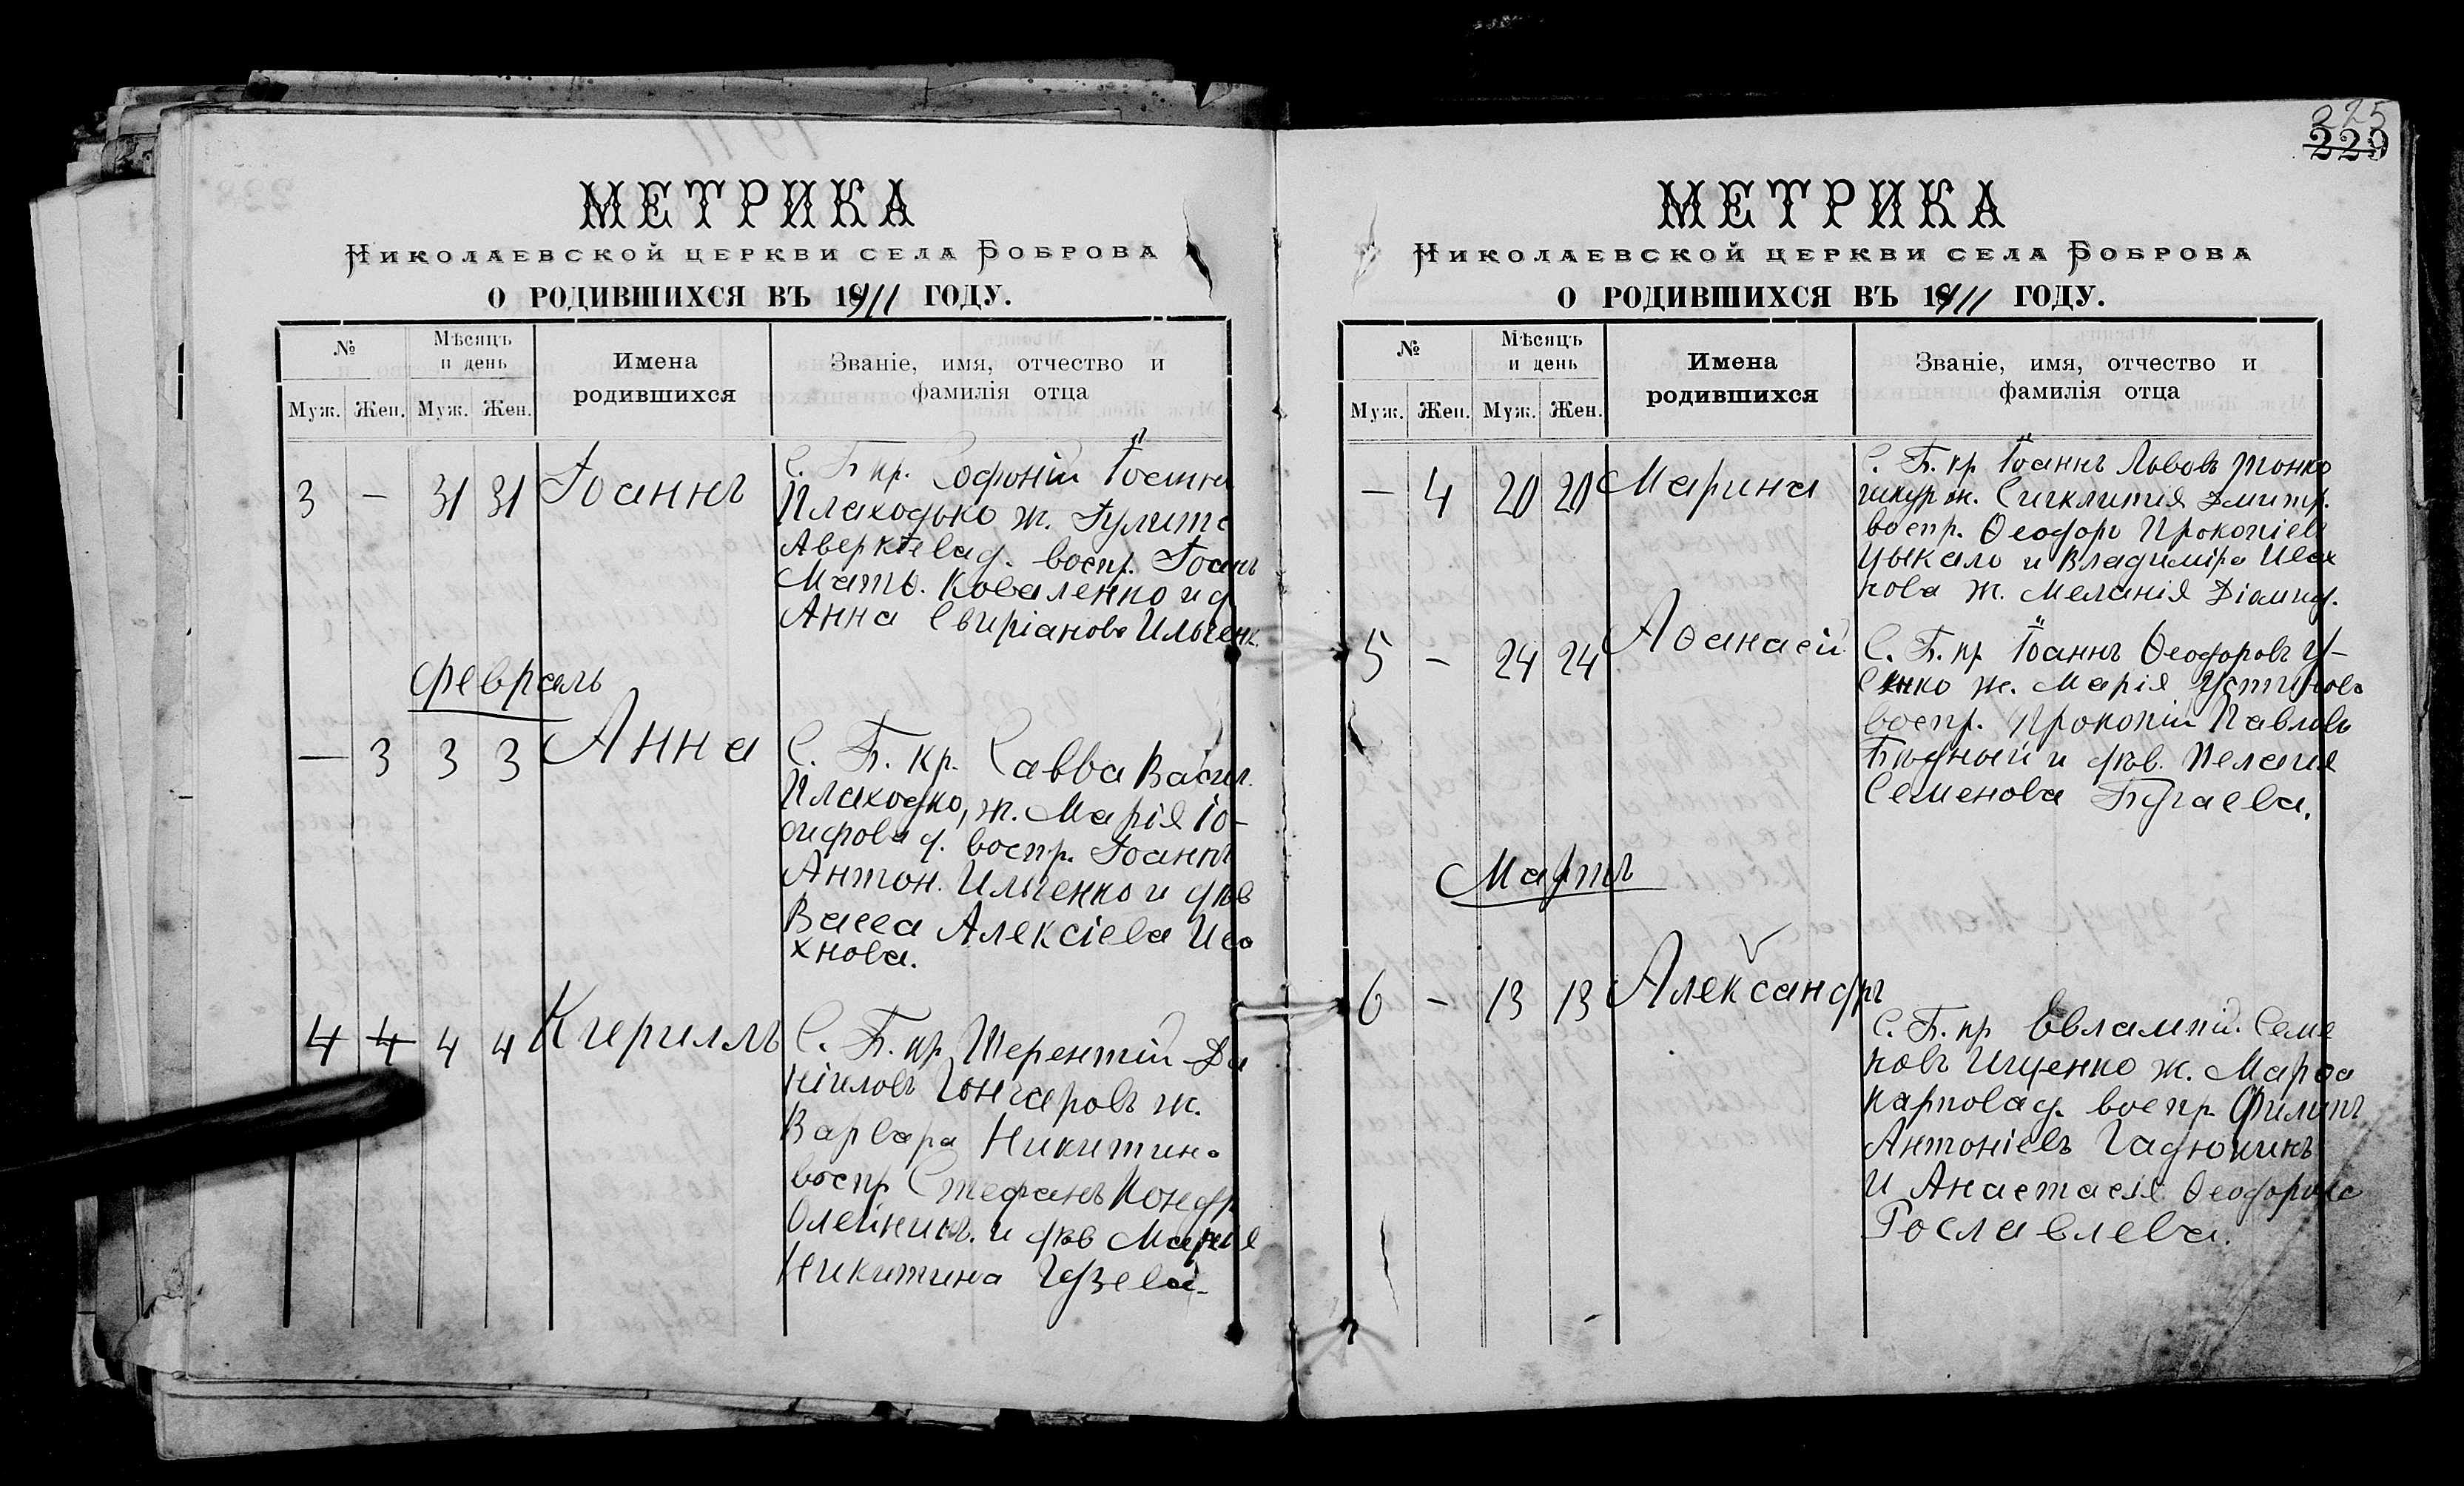 МЕТРИКА
Николаевской церкви села Боброва
О РОДИВШИХСЯ ВЪ 1911 ГОДУ.
№
Мѣсяцъ и день
Имена родившихся
Званіе, имя, отчество и фамилія отца
Муж. Жен. Муж. Жен.
3 — 31 31 Іоаннъ
С. Б. кр. Софоній Іоанн
Плаходько ж. Іулита
Аверкіева д. воспр. Іоанъ
Матѳ. Коваленко и д
Анна Свиріанова Ильченк.
Февраль
— 3 3 3 Анна
С. Б. кр. Савва Васил.
Плаходко, ж. Марія Іо-
сифова д. воспр. Іоаннъ
Антон. Ильченко и дѣв
Васса Алексіева Иса
хнова.
4 4 4 4 Кириллъ
С. Б. кр. Терентій Да
ніиловъ Гончаровъ ж.
Варвара Никитина
воспр Стефанъ Кондр
Олейникъ. и дѣв Марія
Никитина Гузева.
225
229
МЕТРИКА
Николаевской церкви села Боброва
О РОДИВШИХСЯ ВЪ 1911 ГОДУ.
№
Мѣсяцъ и день
Имена родившихся
Званіе, имя, отчество и фамилія отца
Муж. Жен. Муж. Жен.
— 4 20 20 Марина
С. Б. кр Іоаннъ Львовъ Тонко
шкур ж. Сигклитія Дмитр.
воспр. Ѳеодоръ Прокопіев
Цыкало и Владиміра Исах
нова ж. Меланія Діамид.
5 — 24 24 Аѳанасій
С. Б. кр Іоаннъ Ѳеодоровъ У-
сенко ж. Марія Устинова
воспр. Прокопій Павловъ
Бѣдный и дѣв. Пелагія
Семенова Бугаева.
Мартъ
6 — 13 13 Александръ
С. Б. кр Евлампій Семе
новъ Ищенко ж. Марѳа
Карпова д. воспр Филипъ
Антоніевъ Гадючинъ
и Анастасія Ѳеодорова
Рославлева.